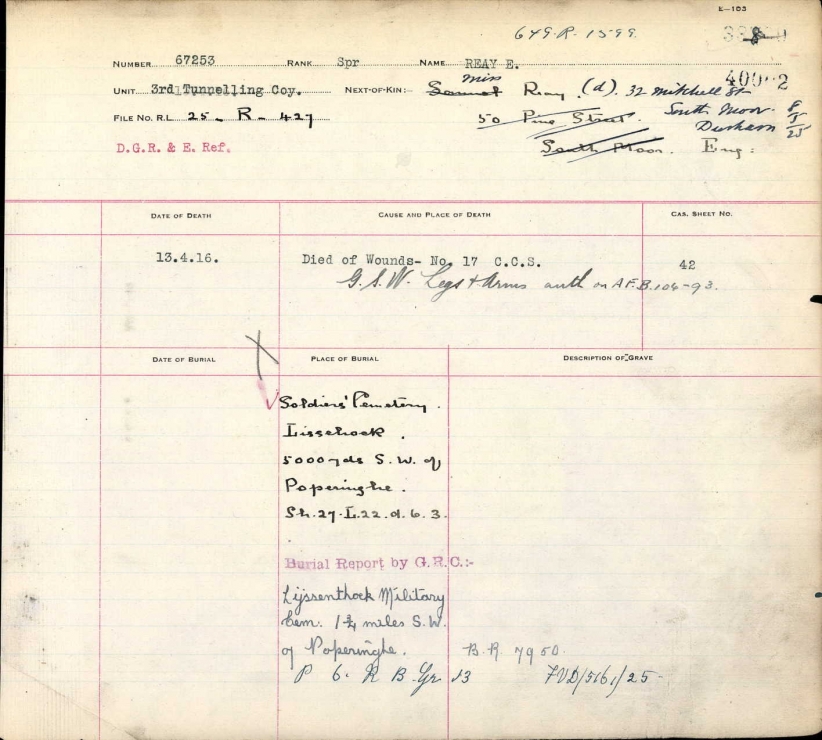 E-103
649-R-1599
NUMBER 67253 RANK Spr NAME REAY E.
40002
UNIT 3rd Tunnelling Coy. NEXT-OF-KIN:- Samuel Miss Reay (d). 32 Mitchell St
FILE NO. R.L. 25-R-427 50 Pine Street. South Moor 8/5/25
Durham
D.G.R. & E. Ref. South Moor. Eng:
DATE OF DEATH CAUSE AND PLACE OF DEATH CAS. SHEET NO.
13.4.16. Died of Wounds- No. 17 C.C.S. 42
G.S.W. Legs & Arms auth on A.F.B.104-93.
DATE OF BURIAL PLACE OF BURIAL DESCRIPTION OF GRAVE
Soldiers' Cemetery.
Lissehoek.
5000 yds S.W. of
Poperinghe.
Sh.27.L.22.d.6.3.
Burial Report by G.R.C.:-
Lijssenthoek Military
Cem. 1¾ miles S.W.
of Poperinghe. B.R. 7950.
P 6. R B. Gr 13 FVD/5161/25